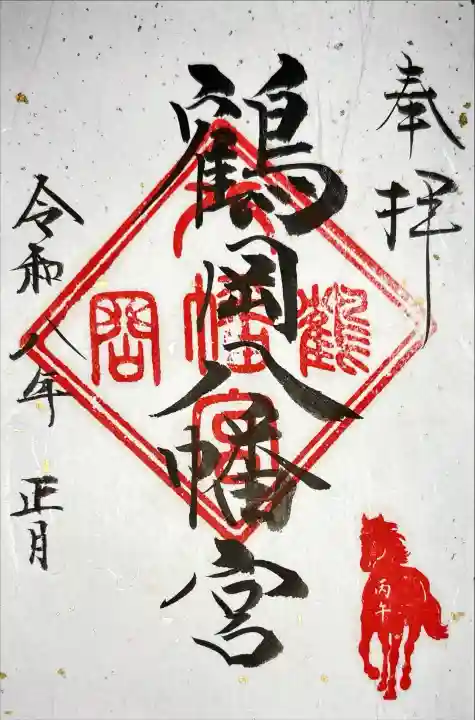 奉拝
鶴岡八幡宮
令和八年 正月
鶴
八幡宮
岡
丙午